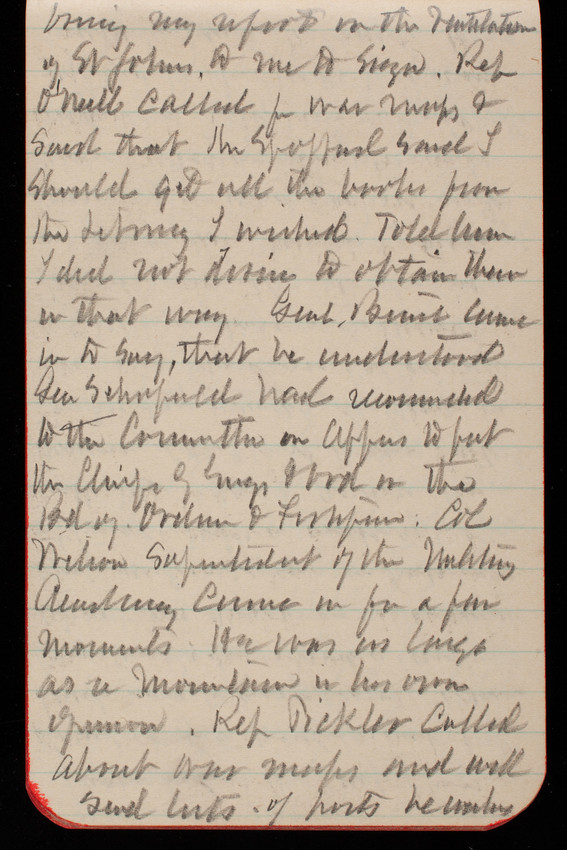 bring my report on the Ventilation
of St Johns, to me to sign. Rep
O'Neill called for war maps &
said that Mr Spofford said I
should get all the books from
the Library I wished. Told him
I did not desire to obtain them
in that way Genl. came
in to say, that he understood
Gen Schofield had recommended
to the Committee on Apprs to put
the Chiefs of Engs & Ord on the
Bd of Ordn & Fortifics. Col
Wilson Superintendent of the Military
Academy came in for a few
moments He was as large
as a Mountain in his own
opinion. Rep Pickler called
about war maps and will
send lists of posts he wishes